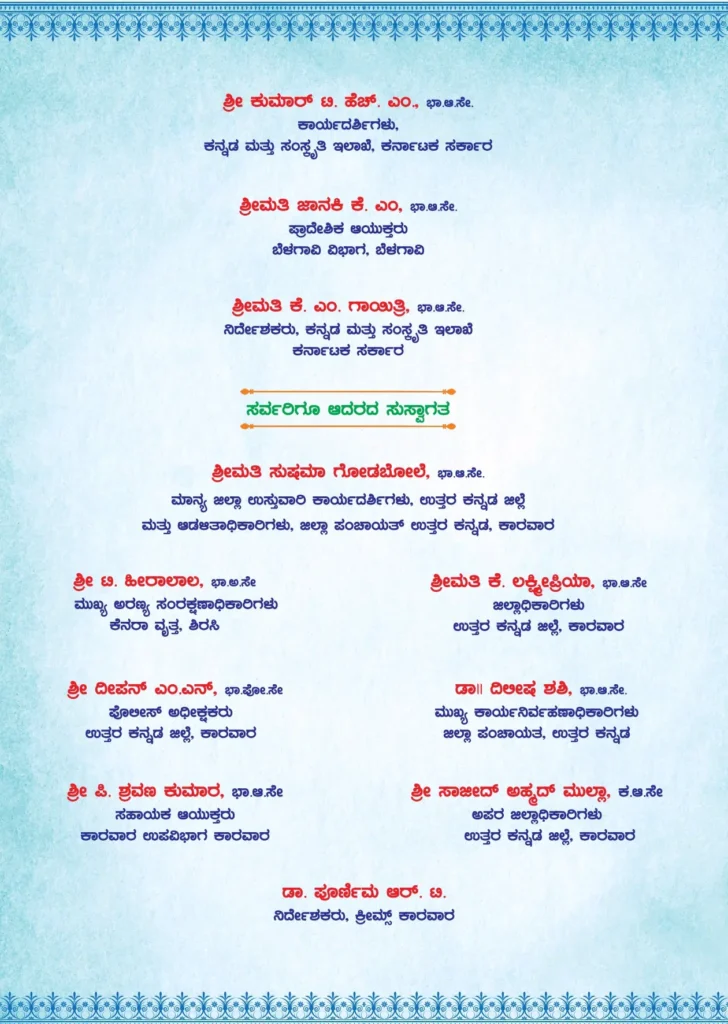 ಶ್ರೀ ಕುಮಾರ್ ಟಿ. ಹೆಚ್. ಎಂ., ಭಾ.ಆ.ಸೇ.
ಕಾರ್ಯದರ್ಶಿಗಳು,
ಕನ್ನಡ ಮತ್ತು ಸಂಸ್ಕೃತಿ ಇಲಾಖೆ, ಕರ್ನಾಟಕ ಸರ್ಕಾರ
ಶ್ರೀಮತಿ ಜಾನಕಿ ಕೆ. ಎಂ, ಭಾ.ಆ.ಸೇ.
ಪ್ರಾದೇಶಿಕ ಆಯುಕ್ತರು
ಬೆಳಗಾವಿ ವಿಭಾಗ, ಬೆಳಗಾವಿ
ಶ್ರೀಮತಿ ಕೆ. ಎಂ. ಗಾಯಿತ್ರಿ, ಭಾ.ಆ.ಸೇ.
ನಿರ್ದೇಶಕರು, ಕನ್ನಡ ಮತ್ತು ಸಂಸ್ಕೃತಿ ಇಲಾಖೆ
ಕರ್ನಾಟಕ ಸರ್ಕಾರ
ಸರ್ವರಿಗೂ ಆದರದ ಸುಸ್ವಾಗತ
ಶ್ರೀಮತಿ ಸುಷಮಾ ಗೋಡಬೋಲೆ, ಭಾ.ಆ.ಸೇ.
ಮಾನ್ಯ ಜಿಲ್ಲಾ ಉಸ್ತುವಾರಿ ಕಾರ್ಯದರ್ಶಿಗಳು, ಉತ್ತರ ಕನ್ನಡ ಜಿಲ್ಲೆ
ಮತ್ತು ಆಡಳಿತಾಧಿಕಾರಿಗಳು, ಜಿಲ್ಲಾ ಪಂಚಾಯತ್ ಉತ್ತರ ಕನ್ನಡ, ಕಾರವಾರ
ಶ್ರೀ ಟಿ. ಹೀರಾಲಾಲ, ಭಾ.ಅ.ಸೇ
ಮುಖ್ಯ ಅರಣ್ಯ ಸಂರಕ್ಷಣಾಧಿಕಾರಿಗಳು
ಕೆನರಾ ವೃತ್ತ, ಶಿರಸಿ
ಶ್ರೀಮತಿ ಕೆ. ಲಕ್ಷ್ಮೀಪ್ರಿಯಾ, ಭಾ.ಆ.ಸೇ
ಜಿಲ್ಲಾಧಿಕಾರಿಗಳು
ಉತ್ತರ ಕನ್ನಡ ಜಿಲ್ಲೆ, ಕಾರವಾರ
ಶ್ರೀ ದೀಪನ್ ಎಂ.ಎನ್, ಭಾ.ಪೋ.ಸೇ
ಪೊಲೀಸ್ ಅಧೀಕ್ಷಕರು
ಉತ್ತರ ಕನ್ನಡ ಜಿಲ್ಲೆ, ಕಾರವಾರ
ಡಾ|| ದಿಲೀಷ ಶಶಿ, ಭಾ.ಆ.ಸೇ.
ಮುಖ್ಯ ಕಾರ್ಯನಿರ್ವಹಣಾಧಿಕಾರಿಗಳು
ಜಿಲ್ಲಾ ಪಂಚಾಯತ, ಉತ್ತರ ಕನ್ನಡ
ಶ್ರೀ ಪಿ. ಶ್ರವಣ ಕುಮಾರ, ಭಾ.ಆ.ಸೇ
ಸಹಾಯಕ ಆಯುಕ್ತರು
ಕಾರವಾರ ಉಪವಿಭಾಗ ಕಾರವಾರ
ಶ್ರೀ ಸಾಜೀದ್ ಅಹ್ಮದ್ ಮುಲ್ಲಾ, ಕ.ಆ.ಸೇ
ಅಪರ ಜಿಲ್ಲಾಧಿಕಾರಿಗಳು
ಉತ್ತರ ಕನ್ನಡ ಜಿಲ್ಲೆ, ಕಾರವಾರ
ಡಾ. ಪೂರ್ಣಿಮ ಆರ್. ಟಿ.
ನಿರ್ದೇಶಕರು, ಕ್ರೀಮ್ಸ್ ಕಾರವಾರ